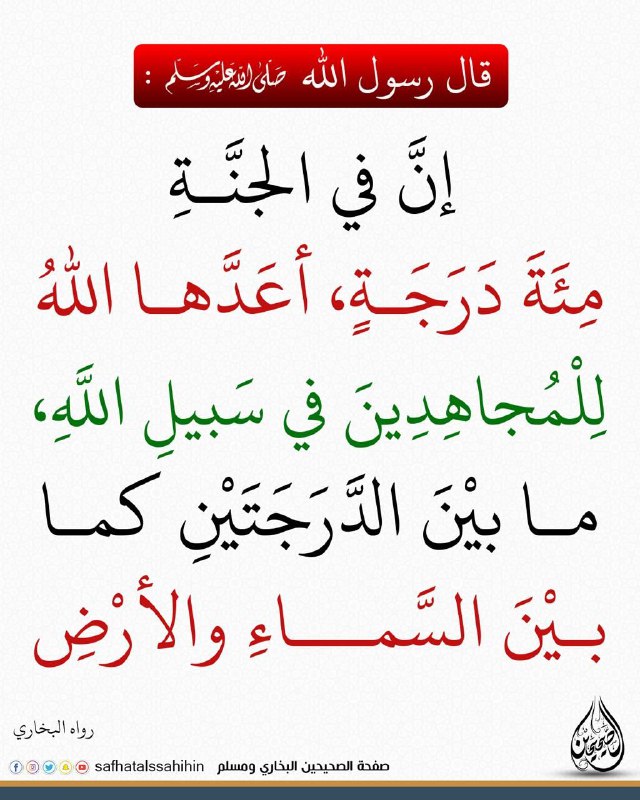 قال رسول الله صَلَّى اللَّهُ عَلَيْهِ وَسَلَّم :
إنَّ في الجنَّـةِ
مِئَةَ دَرَجَـةٍ، أعَدَّهـا اللهُ
لِلْمُجاهِدِينَ في سَبيلِ اللَّهِ،
مـا بيْنَ الدَّرَجَتَيْنِ كمـا
بـيْنَ السَّمـــاءِ والأرْضِ
رواه البخاري
الصحيحين
صفحة الصحيحين البخاري ومسلم safhatalssahihin